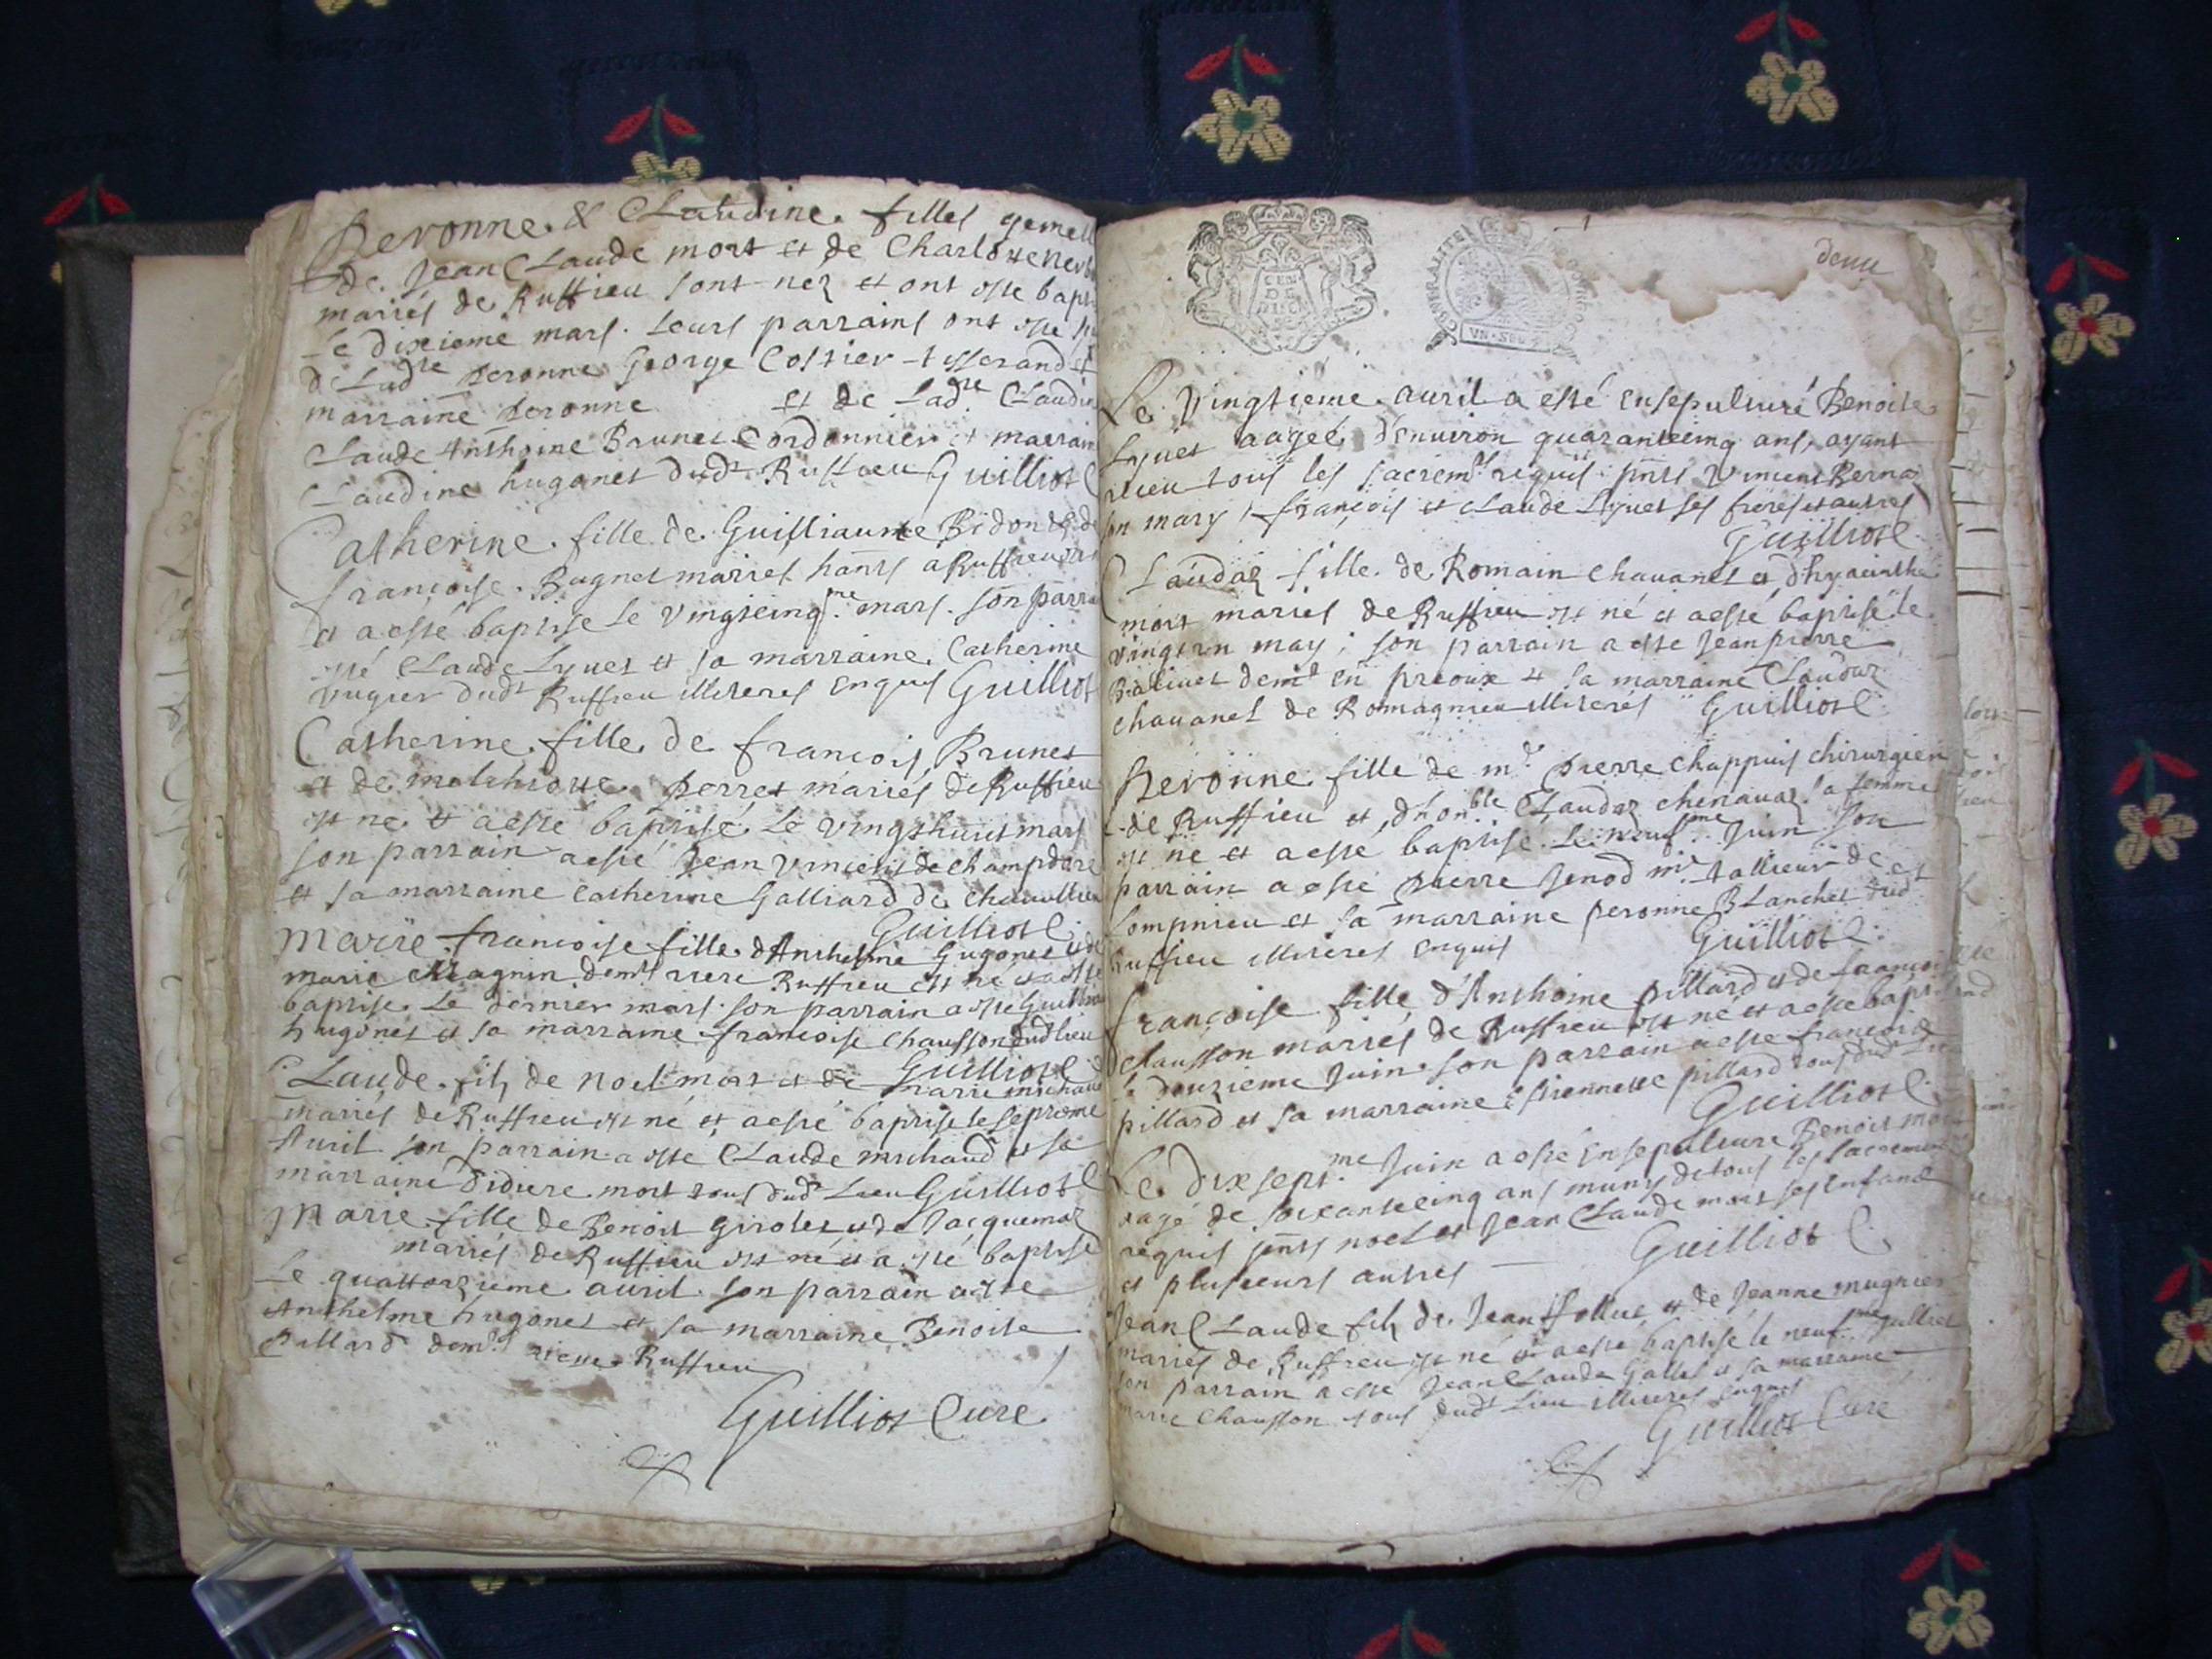 Peronne & Claudine filles gemell
de Jean Claude mort et de Charlotte
mariés de Ruffieu sont nez et ont esté bapt
le dixieme mars. leurs parrains ont esté
de Ladte peronne George Costier tisserand et
marraine peronne et de Ladte Claudin
Claude Anthoine Brunet Cordonnier et marrain
Claudine hugonet dudt Ruffieu Guilliot C
Catherine fille de Guilliaume Bidon & de
françoise Bugnet mariés hants a Ruffieu
et a esté baptisé le vingtcinqme mars. son parra
esté Claude Lyvet et sa marraine Catherine
vugier dudt Ruffieu illiterés enquis Guilliot
Catherine fille de françois Brunet
et de melchiotte perret mariés de Ruffieu
est né et a esté baptisé le vingthuit mars
son parrain a esté Jean vincent de champdore
et sa marraine catherine Galliard de
Guilliot C.
Marie françoise fille d'Anthelme hugonet et de
marie Magnin demt riere Ruffieu est né et a esté
baptisé le dernier mars. son parrain a esté
hugonet et sa marraine françoise chausson dud lieu
Guilliot C
Claude fils de noel mort et de marie michaud
mariés de Ruffieu est né et a esté baptisé le septieme
Avril son parrain a esté Claude michaud et sa
marraine didiere mort tous dudt Lieu Guilliot C
Marie fille de Benoit Girolet et de Jacquemaz
mariés de Ruffieu est né et a esté baptisé
Le quattorzieme avril son parrain a esté
Anthelme hugonet et sa marraine Benoite
Pillard demt riere Ruffieu
Guilliot Cure
GENERALITE
VN SOL
deux
Le vingtieme avril a esté ensepulturé Benoite
Lyvet aagée d'environ quarantecinq ans, ayant
receu tous les sacremts requis pnts Vincent Bernard
son mary, françois et claude Lyvet ses freres et autres
Guilliot C.
Claudaz fille de Romain chavanet et d'hyacinthe
mort mariés de Ruffieu est né et a esté baptisé le
vingt un may; son parrain a esté Jean pierre
demt en et sa marraine Claudaz
chavanet de Romagnieu illiterés Guilliot C.
Peronne fille de mr pierre chappuis chirurgien
de Ruffieu et d'honble Claudaz chenavaz sa femme
est né et a esté baptisé le neufme Juin son
parrain a esté pierre Jenod mr tallieur de
Lompnieu et sa marraine peronne Blanchet dudt
Ruffieu illiterés enquis Guilliot C.
françoise fille d'Anthoine pillard et de françoise
chausson mariés de Ruffieu est né et a esté bapt
le douzieme Juin. son parrain a esté françois
pillard et sa marraine Estiennette pillard tous dudt Lieu
Guilliot C.
Le dix septme Juin a esté ensepulturé Benoit mort
aagé de soixantecinq ans muny de tous les sacrements
requis pnts noel et Jean Claude mort ses enfans
et plusieurs autres Guilliot C.
Jean Claude fils de Jean et de Jeanne mugnier
mariés de Ruffieu est né et a esté baptisé le neufme Julliet
son parrain a esté Jean Claude Gallet et sa marraine
marie chausson tous dudt Lieu illiterés enquis
Guilliot Cure